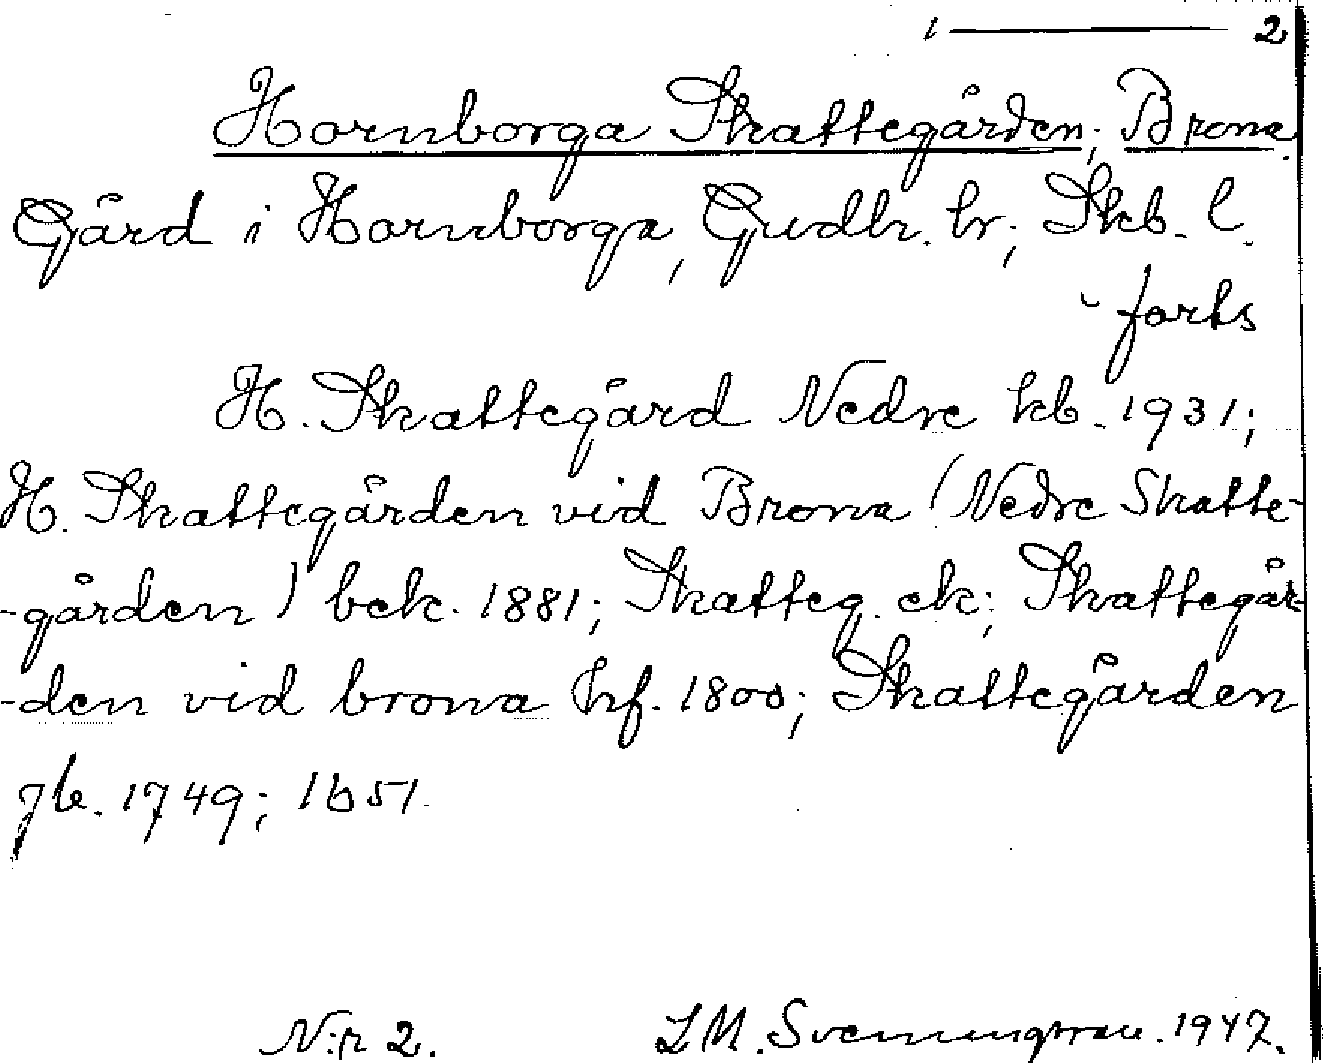 1 ——— 2
Hornborga Skattegården; Brona.
Gård i Hornborga, Gudh. hr; Skb. l.
forts
H. Skattegård Nedre kb. 1931;
H. Skattegården vid Brona (Nedre Skatte-
-gården) bek. 1881; Skatteg. ek; Skattegår-
-den vid brona hf. 1800; Skattegården
jb. 1749; 1651.
N:r 2. L M. Svenungsson. 1947.